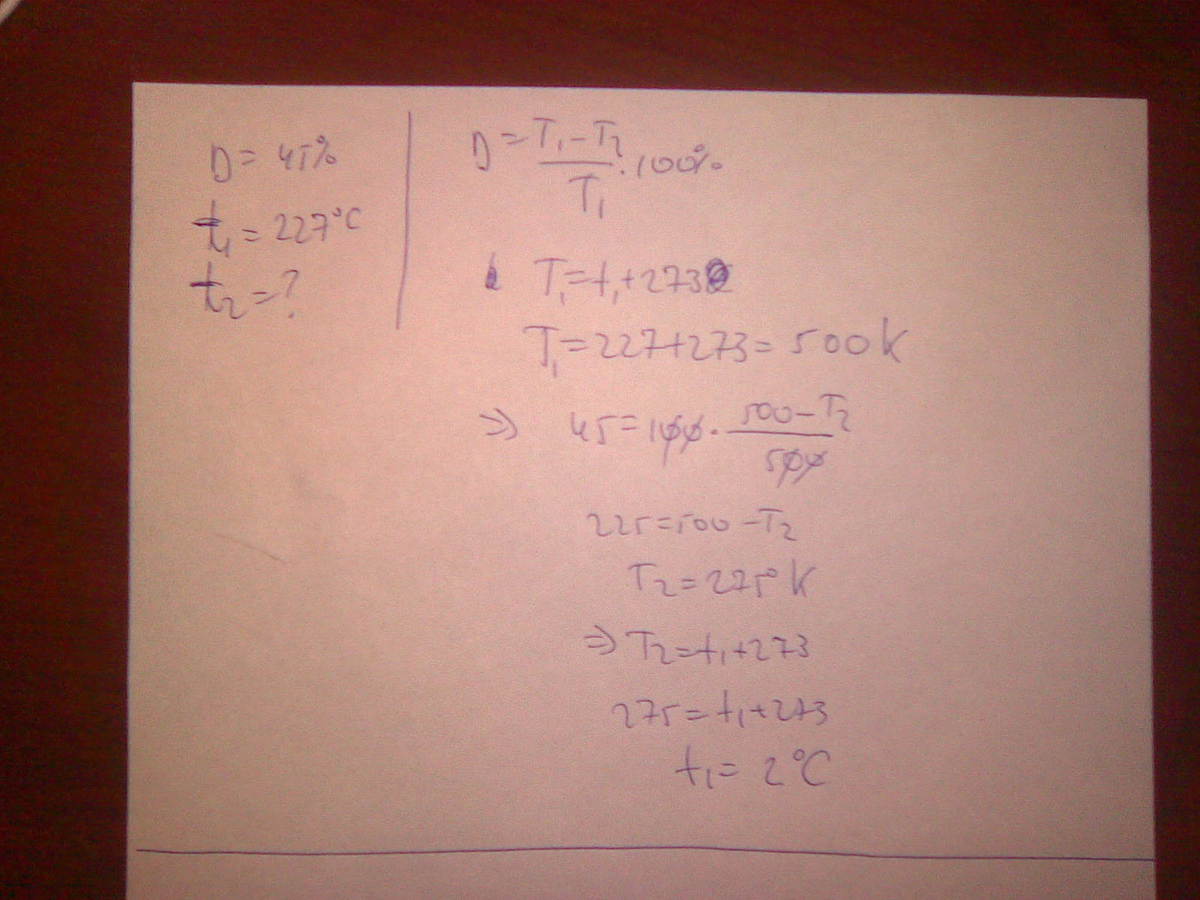 D = 45%
t₁ = 227°C
t₂ = ?
D = (T₁ - T₂)/T₁ · 100%
T₁ = t₁ + 273
T₁ = 227 + 273 = 500K
⇒ 45 = 100 · (500 - T₂)/500
225 = 500 - T₂
T₂ = 275°K
⇒ T₂ = t₁ + 273
275 = t₁ + 273
t₁ = 2°C